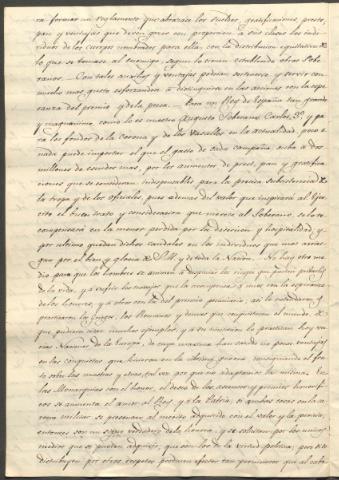 ra formar un reglamento que abrazase los sueldos, gratificaciones, prest,
pan y ventajas que deven gozar con proporcion a sus clases los indi-
viduos de los cuerpos nombrados para ella, con la distribucion equitativa de
lo que se tomase al enemigo, segun lo tienen establecido otras Sobe-
ranos. Con tales auxilios y ventajas podrian sostenerse, y servir con
mucho mas gusto esforzandose a distinguirse en las acciones con la espe-
ranza del premio y de la presa. Para un Rey de España tan grande
y magnanimo como lo es nuestro Augusto Soberano Carlos 3º, y pa-
ra los fondos de la Corona y de los Vasallos en la actualidad, poco o
nada puede importar el que el gasto de cada campaña suba a dos
millones de escudos mas, por los aumentos de prest, pan y gratifica-
ciones que se consideran indispensables para la precisa subsistencia de
la tropa y de los oficiales, pues ademas del valor que inspirará al Exer-
cito el buen trato y consideracion que merece al Soberano, se lo re-
compensará en la menor perdida por la desercion y hospitalidad, y
por ultimo quedan dichos caudales en los individuos que mas arries-
gan por el bien y gloria de S.M. y de toda la Nacion. No hay otro me-
dio para que los hombres se animen a despreciar los riesgos que
de la vida, y a sufrir los trabajos que la acompañan, a unos con la esperanza
de los honores, y a otros con la del premio pecuniario; asi lo entendieron, y
practicaron los Griegos, los Romanos y demas que conquistaron el mundo, de
que pudiera citar muchos exemplos, y a su imitacion lo practican hoy va-
rias Naciones de la Europa, de cuya maxima han sacado no pocas ventajas
en las conquistas que hicieron en la ultima guerra, consiguiendo el fru-
to sobre las nuestras y otras, tal vez por que no adoptamos las mismas. En
las Monarquias con el honor, el deseo de los ascensos y premios honorifi-
cos se aumenta el amor al Rey, y a la Patria; si ambas cosas en la ca-
rrera militar se presentan al merito adquirido con el valor y la pericia,
entonces son un signo verdadero de la honra, y se solicitan por los unicos
medios que se pueden adquirir, que son los de la virtud politica; pero si se
distribuyen por otros respetos producen efectos tan perniciosos que al cabo